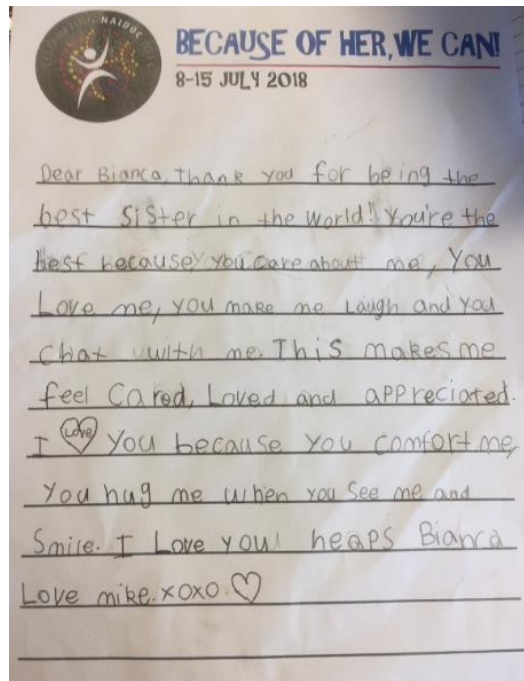 CELEBRATING NAIDOC WEEK
BECAUSE OF HER, WE CAN!
8-15 JULY 2018
Dear Bianca, thank you for being the
best SiSter in the world! You're the
best because you care about me, You
Love me, you make me Laugh and you
Chat with me. This makes me
feel Cared, Loved and appreciated.
I Love You because you comfort me,
You hug me when you See me and
Smile. I Love you! heaps Bianca
Love mike. xoxo